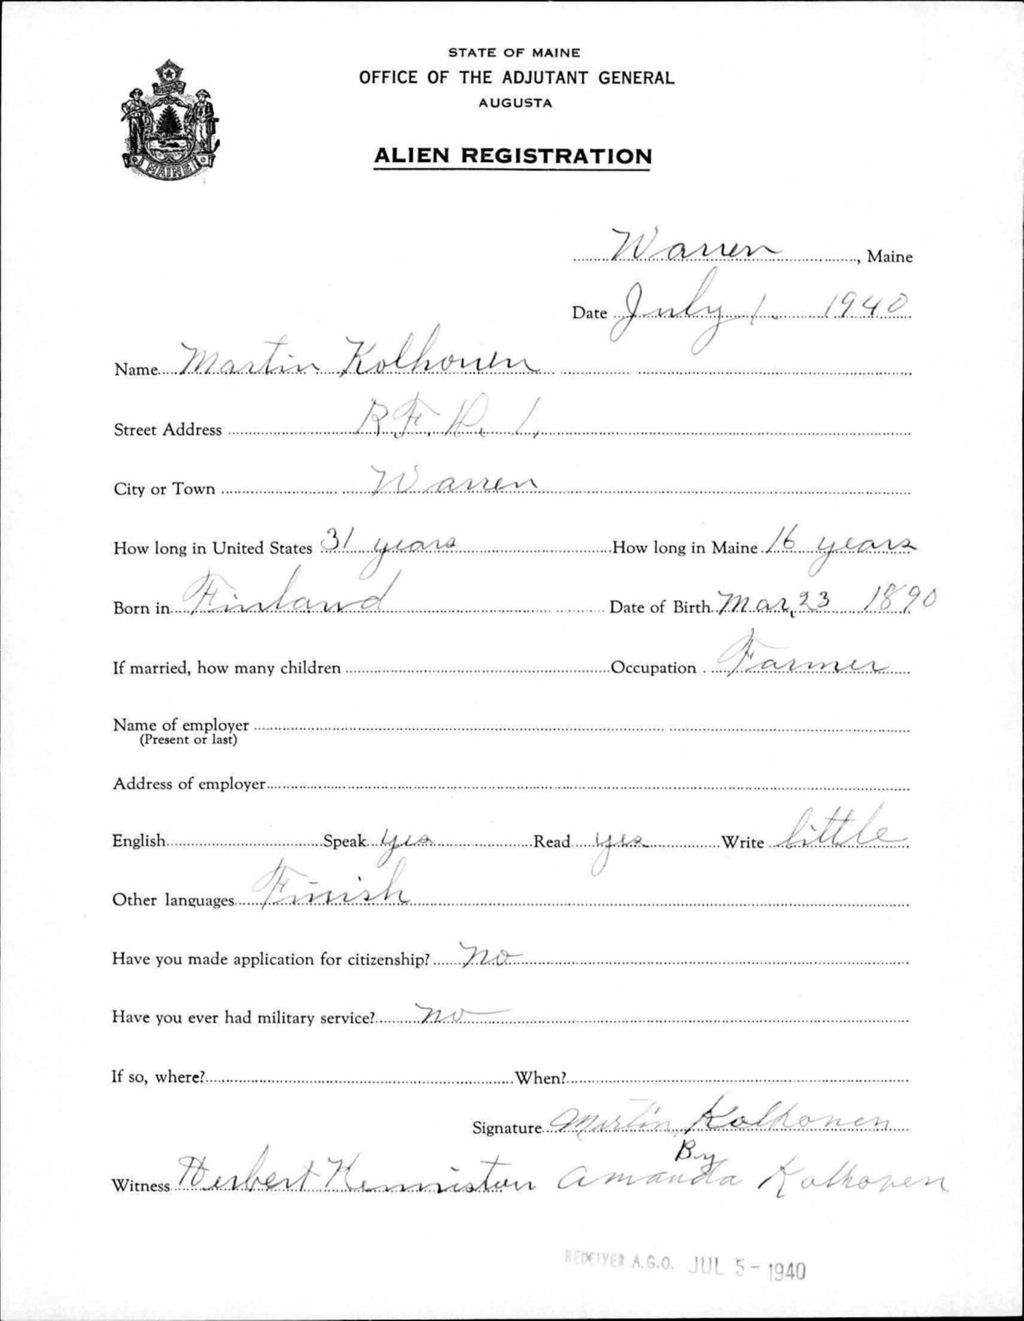 STATE OF MAINE
OFFICE OF THE ADJUTANT GENERAL
AUGUSTA
ALIEN REGISTRATION
MAINE
Warren, Maine
Date July 1. 1940
Name Martin Kolhonen
Street Address R.F.D. 1.
City or Town Warren
How long in United States 31 years How long in Maine 16 years
Born in Finland Date of Birth Mar, 23 1890
If married, how many children Occupation Farmer
Name of employer
(Present or last)
Address of employer
English Speak yes Read yes Write little
Other languages Finish
Have you made application for citizenship? No
Have you ever had military service? No
If so, where? When?
Signature Martin Kolhonen
By
Witness Herbert Kenniston Amanda Kolhonen
RECEIVED A.G.O. JUL 5 - 1940